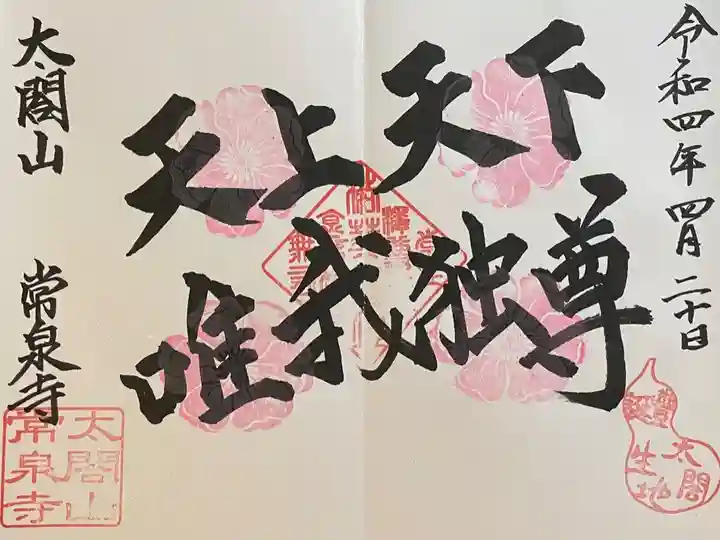 令和四年四月二十日
天上天下
唯我独尊
太閤山
常泉寺
太閤山
常泉寺
豊公
誕
太閤
生地